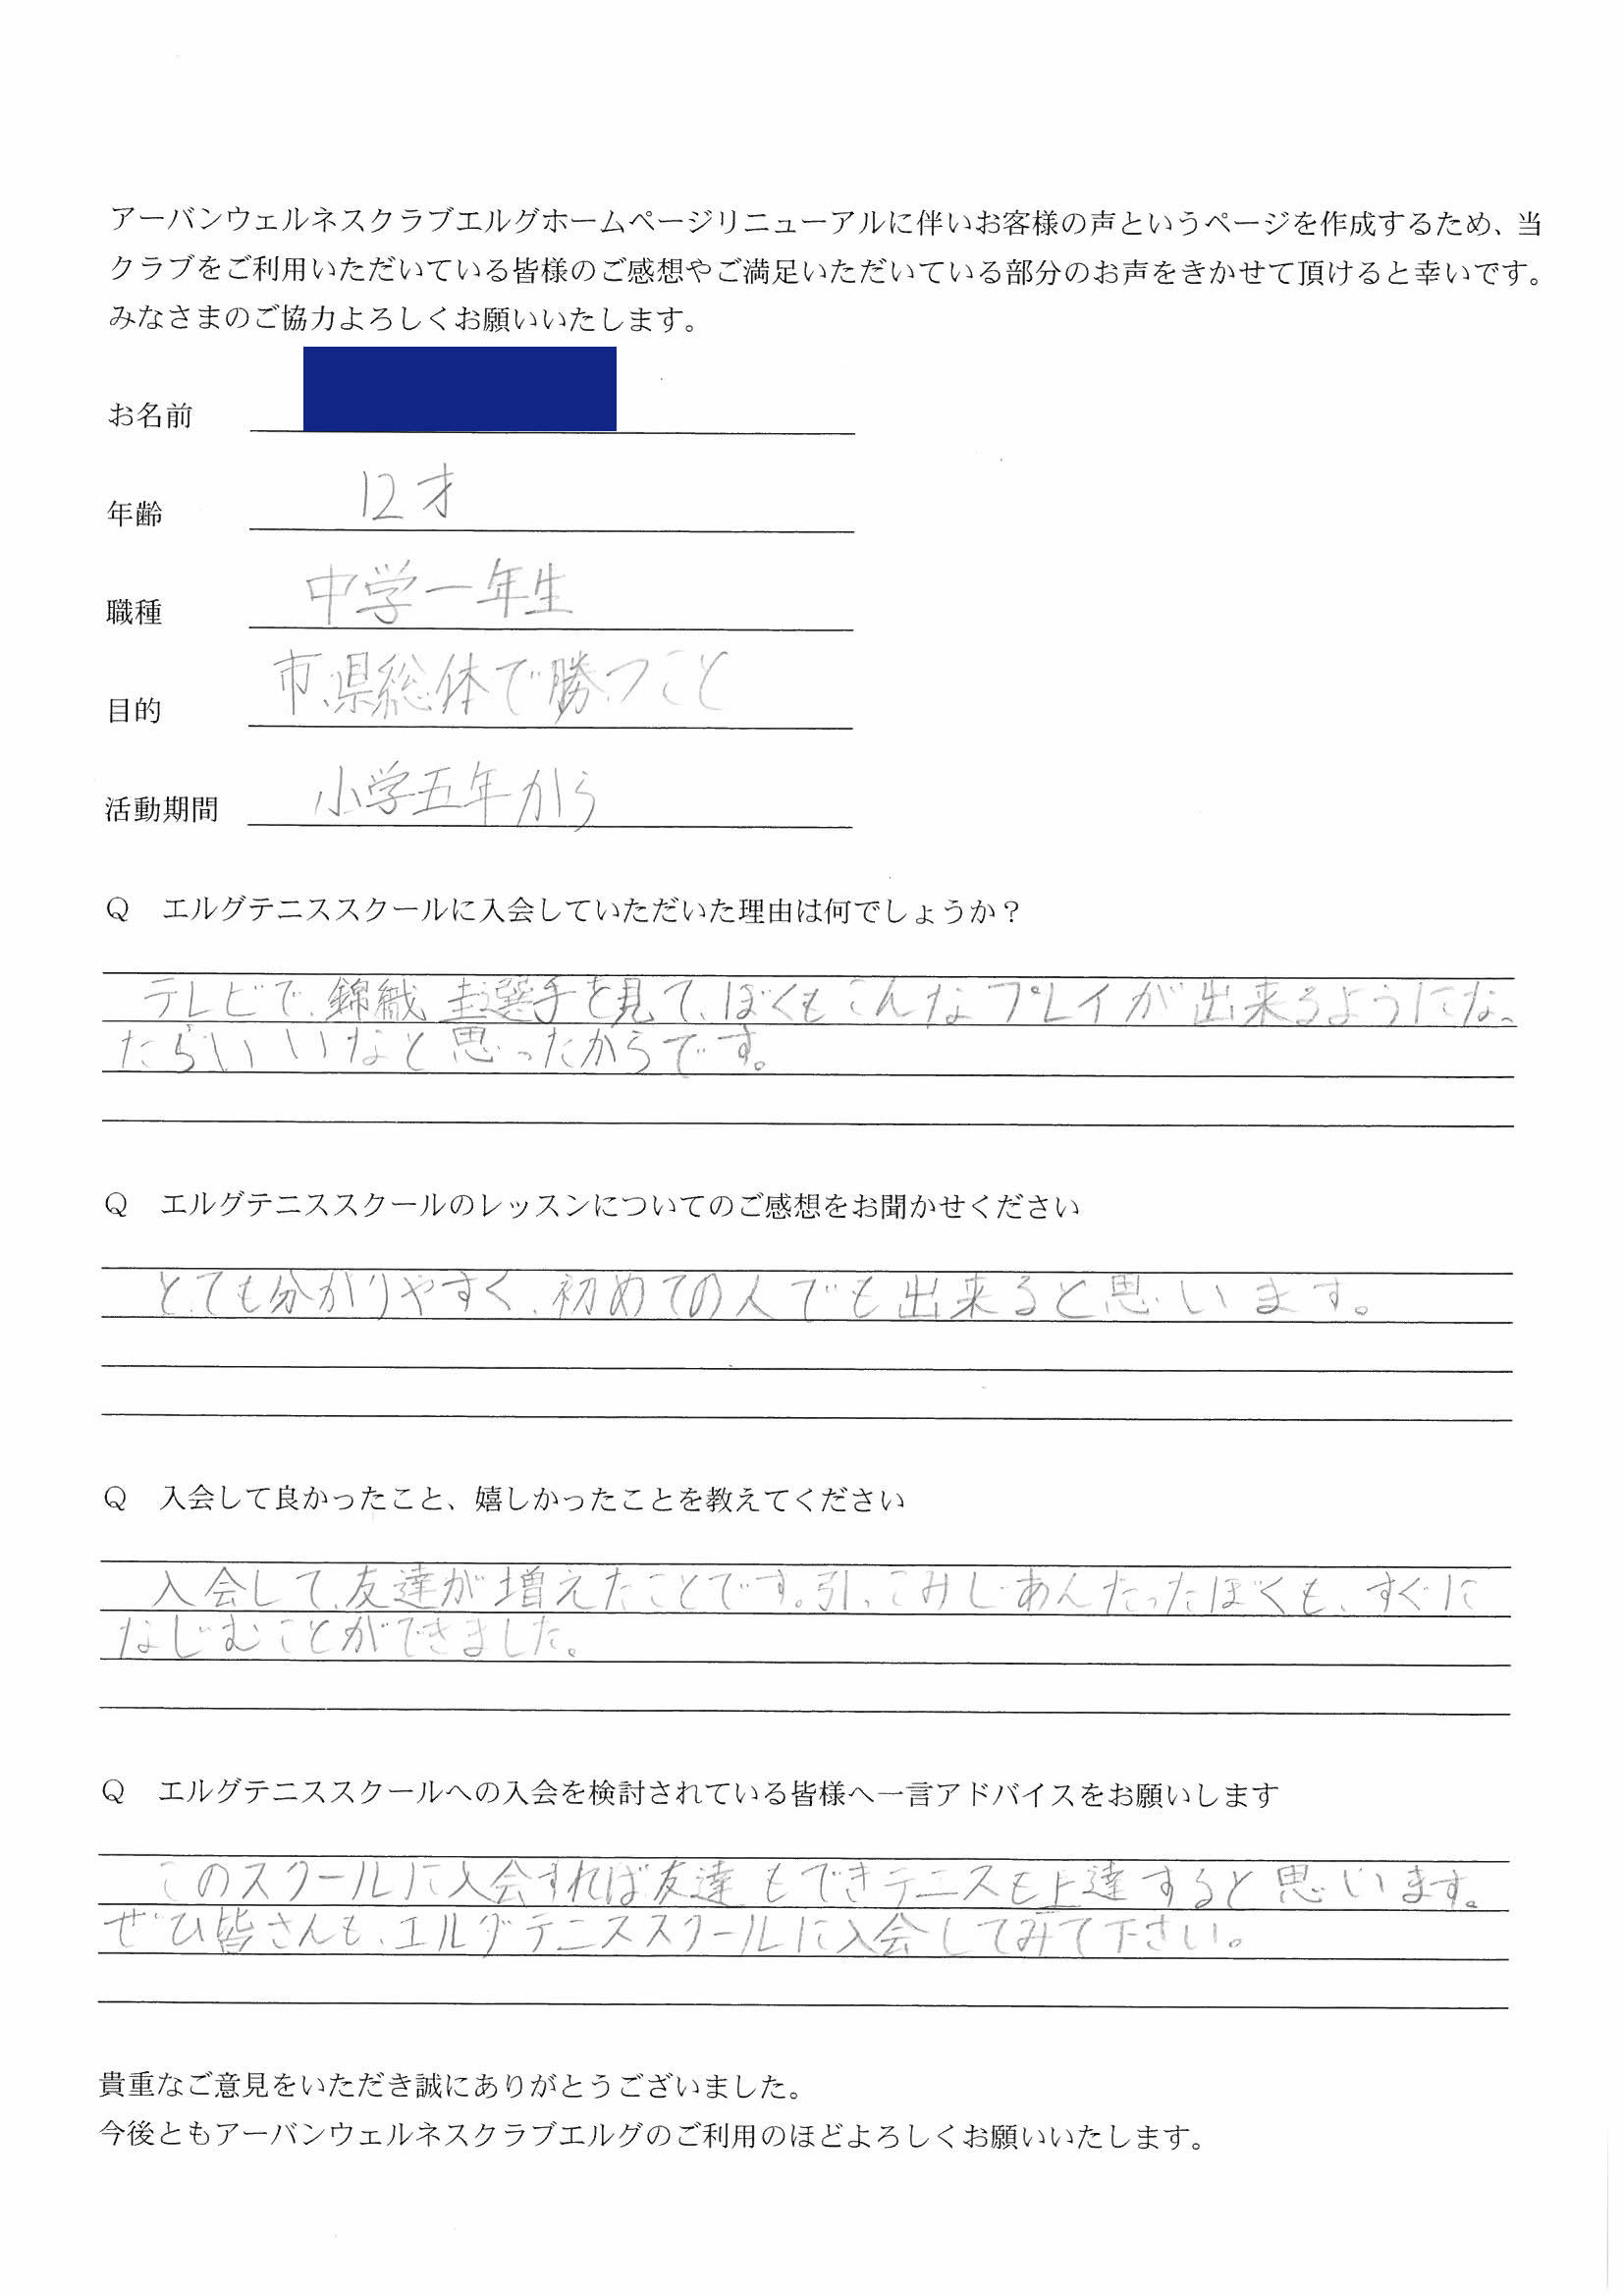 アーバンウェルネスクラブエルグホームページリニューアルに伴いお客様の声というページを作成するため、当
クラブをご利用いただいている皆様のご感想やご満足いただいている部分のお声をきかせて頂けると幸いです。
みなさまのご協力よろしくお願いいたします。
お名前
年齢 12才
職種 中学一年生
目的 市、県総体で勝つこと
活動期間 小学五年から
Q エルグテニススクールに入会していただいた理由は何でしょうか？
テレビで、錦織圭選手を見て、ぼくもこんなプレイが出来るようになっ
たらいいなと思ったからです。
Q エルグテニススクールのレッスンについてのご感想をお聞かせください
とても分かりやすく、初めての人でも出来ると思います。
Q 入会して良かったこと、嬉しかったことを教えてください
入会して、友達が増えたことです。引っこみじあんだったぼくも、すぐに
なじむことができました。
Q エルグテニススクールへの入会を検討されている皆様へ一言アドバイスをお願いします
このスクールに入会すれば友達もできテニスも上達すると思います。
ぜひ皆さんも、エルグテニススクールに入会してみて下さい。
貴重なご意見をいただき誠にありがとうございました。
今後ともアーバンウェルネスクラブエルグのご利用のほどよろしくお願いいたします。